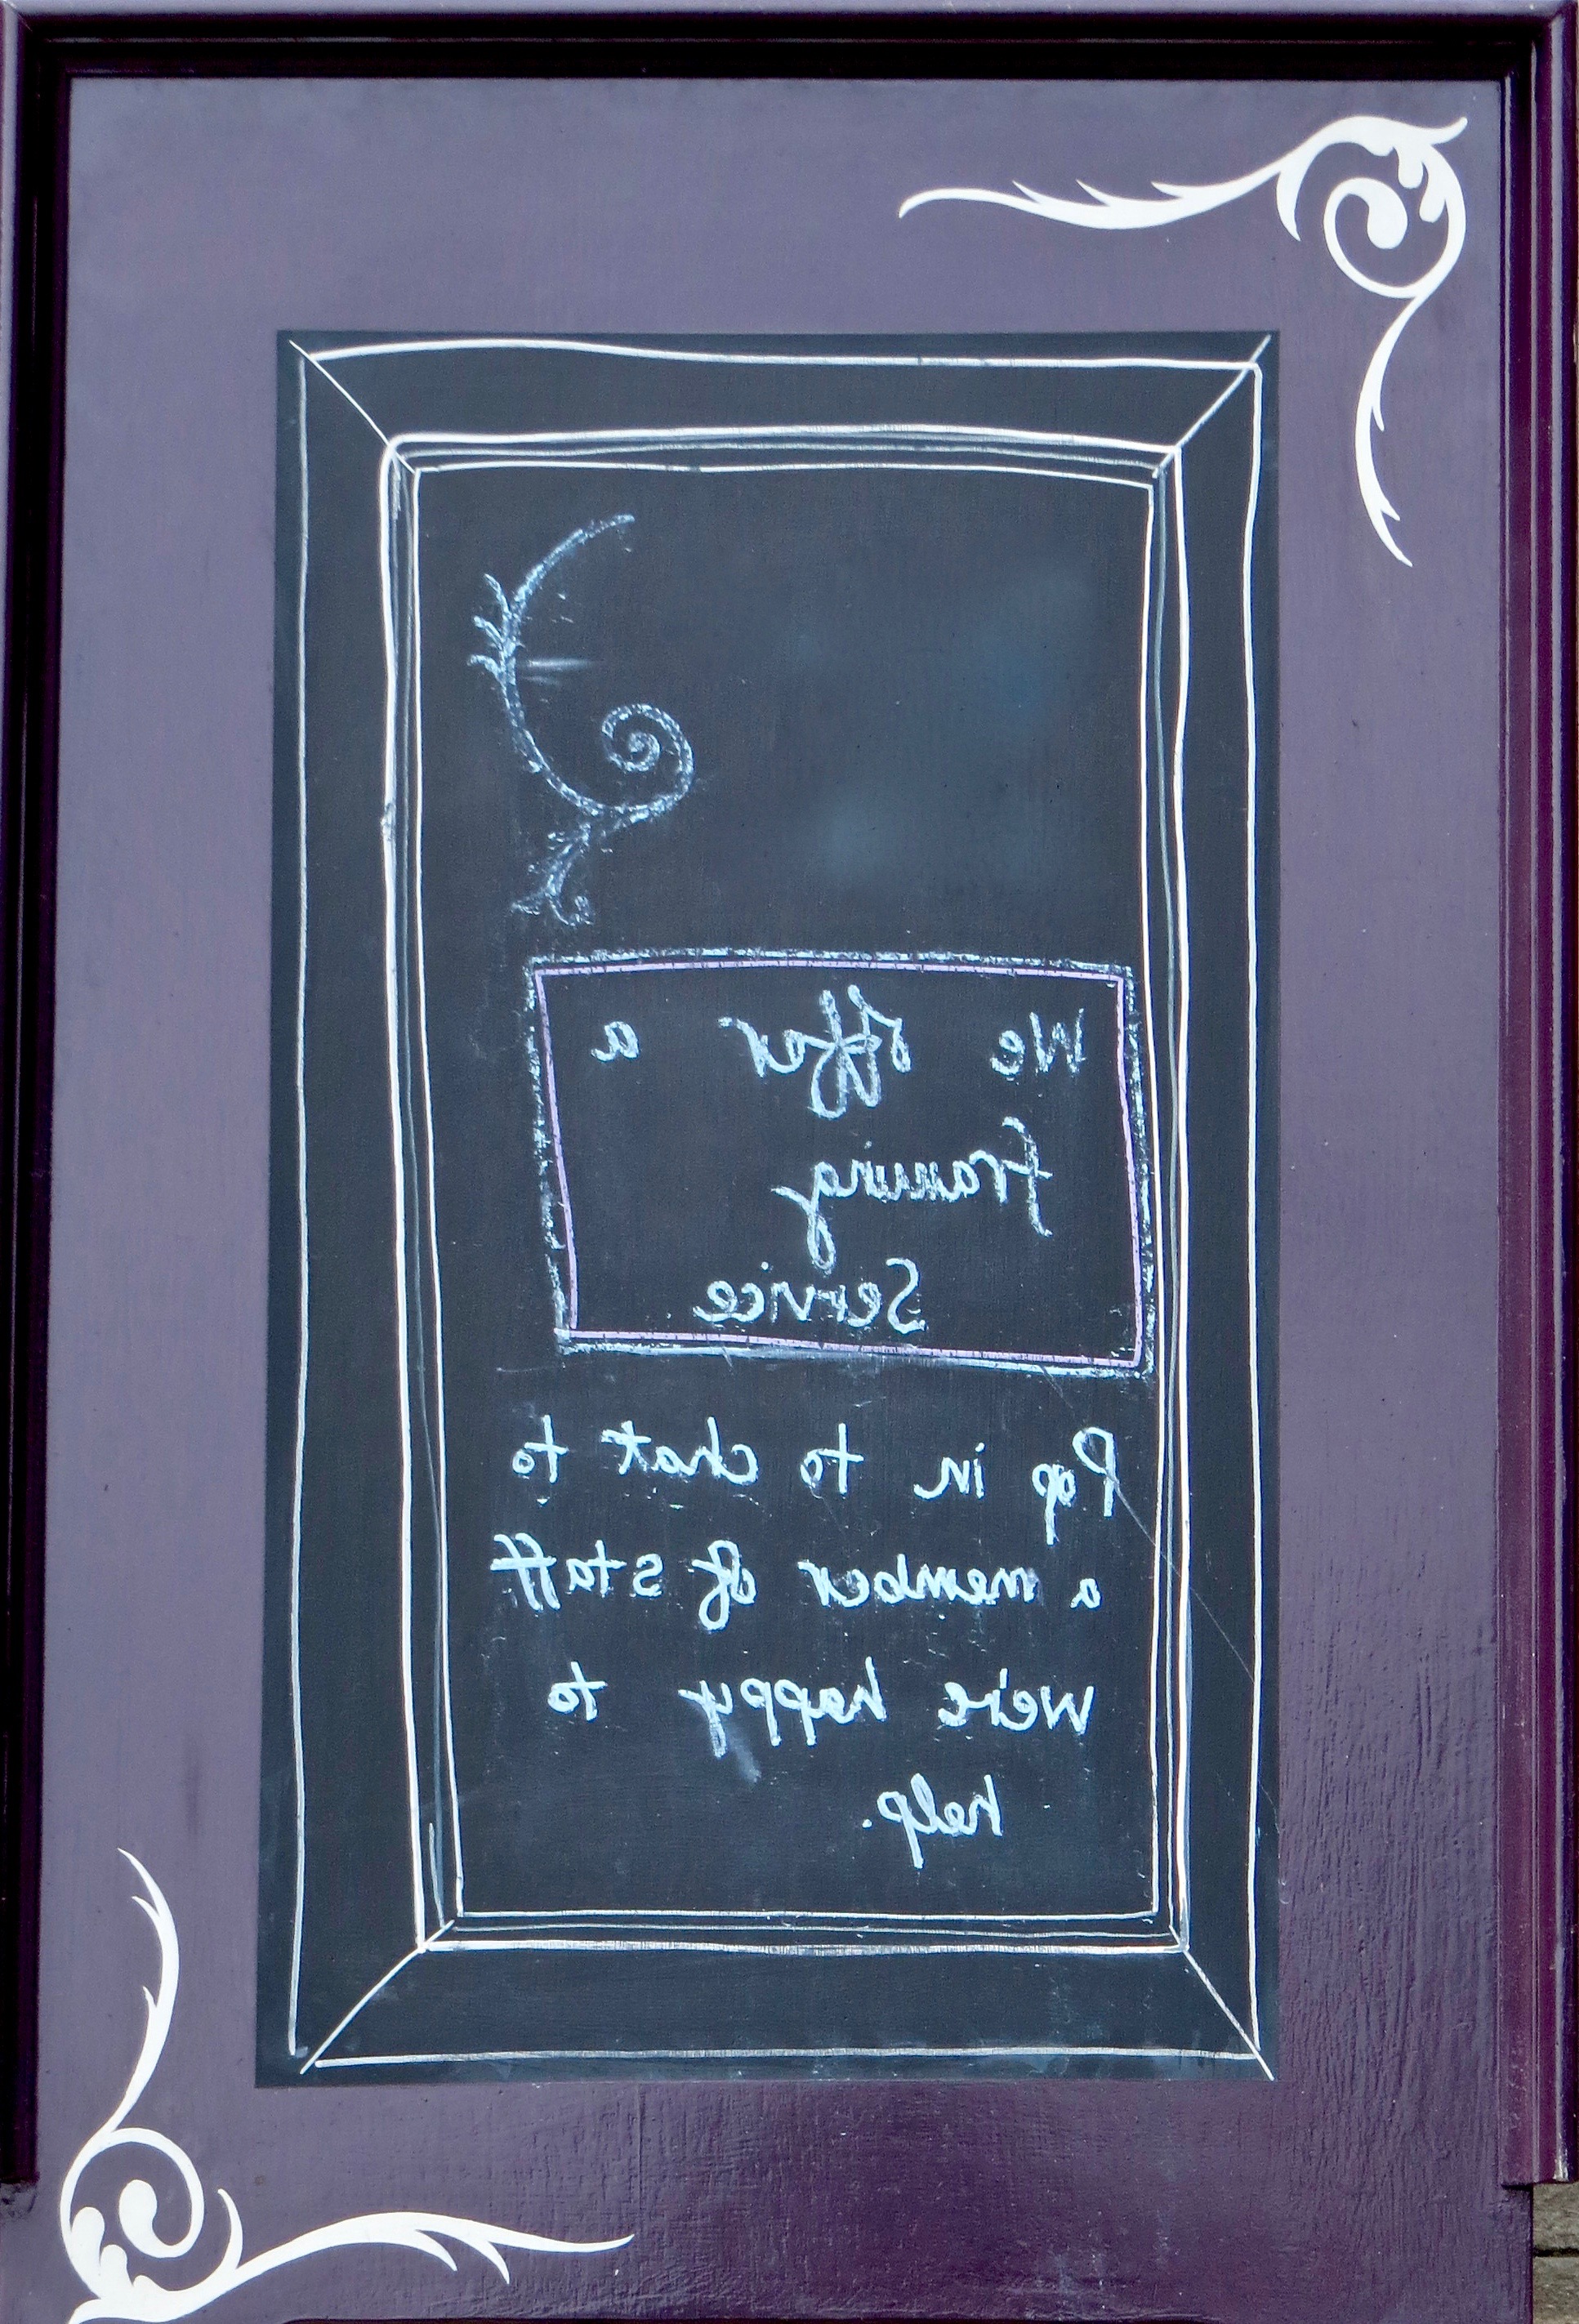 We offer a
framing
Service
Pop in to chat to
a member of staff
we're happy to
help.